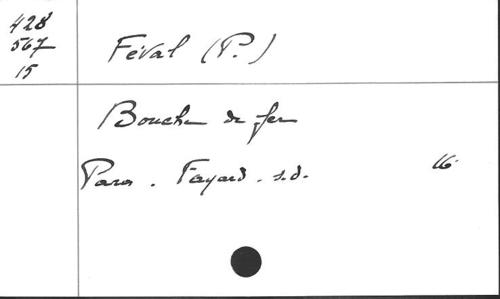 428
567
15
Féval (P.)
Bouche de fer
Paris. Fayard. s.d. 16°